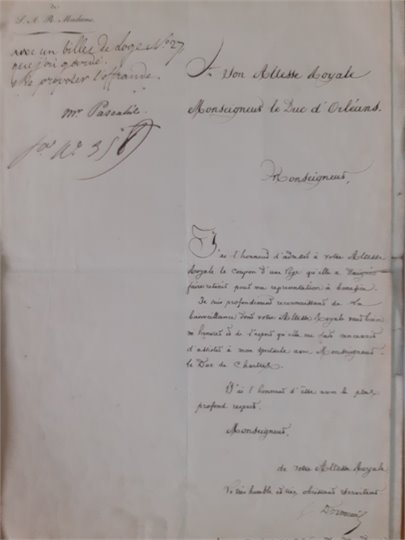 S. A. R. Madame
avec un billet de loge N° 27
que j'ai gardé
l'offrande.
Mr Pascalis
A Son Altesse Royale
Monseigneur le Duc d'Orléans.
Monseigneur,
J'ai l'honneur d'adresser à votre Altesse
Royale le coupon d'une loge qu'elle a daigné
faire retenir pour ma représentation à bénéfice.
Je suis profondément reconnaissant de la
bienveillance dont votre Altesse Royale veut bien
m'honorer et de l'espoir qu'elle me
d'assister à mon spectacle avec Monseigneur
le Duc de Chartres.
J'ai l'honneur d'être avec le plus
profond respect,
Monseigneur,
de votre Altesse Royale,
Le très humble et très obéissant serviteur